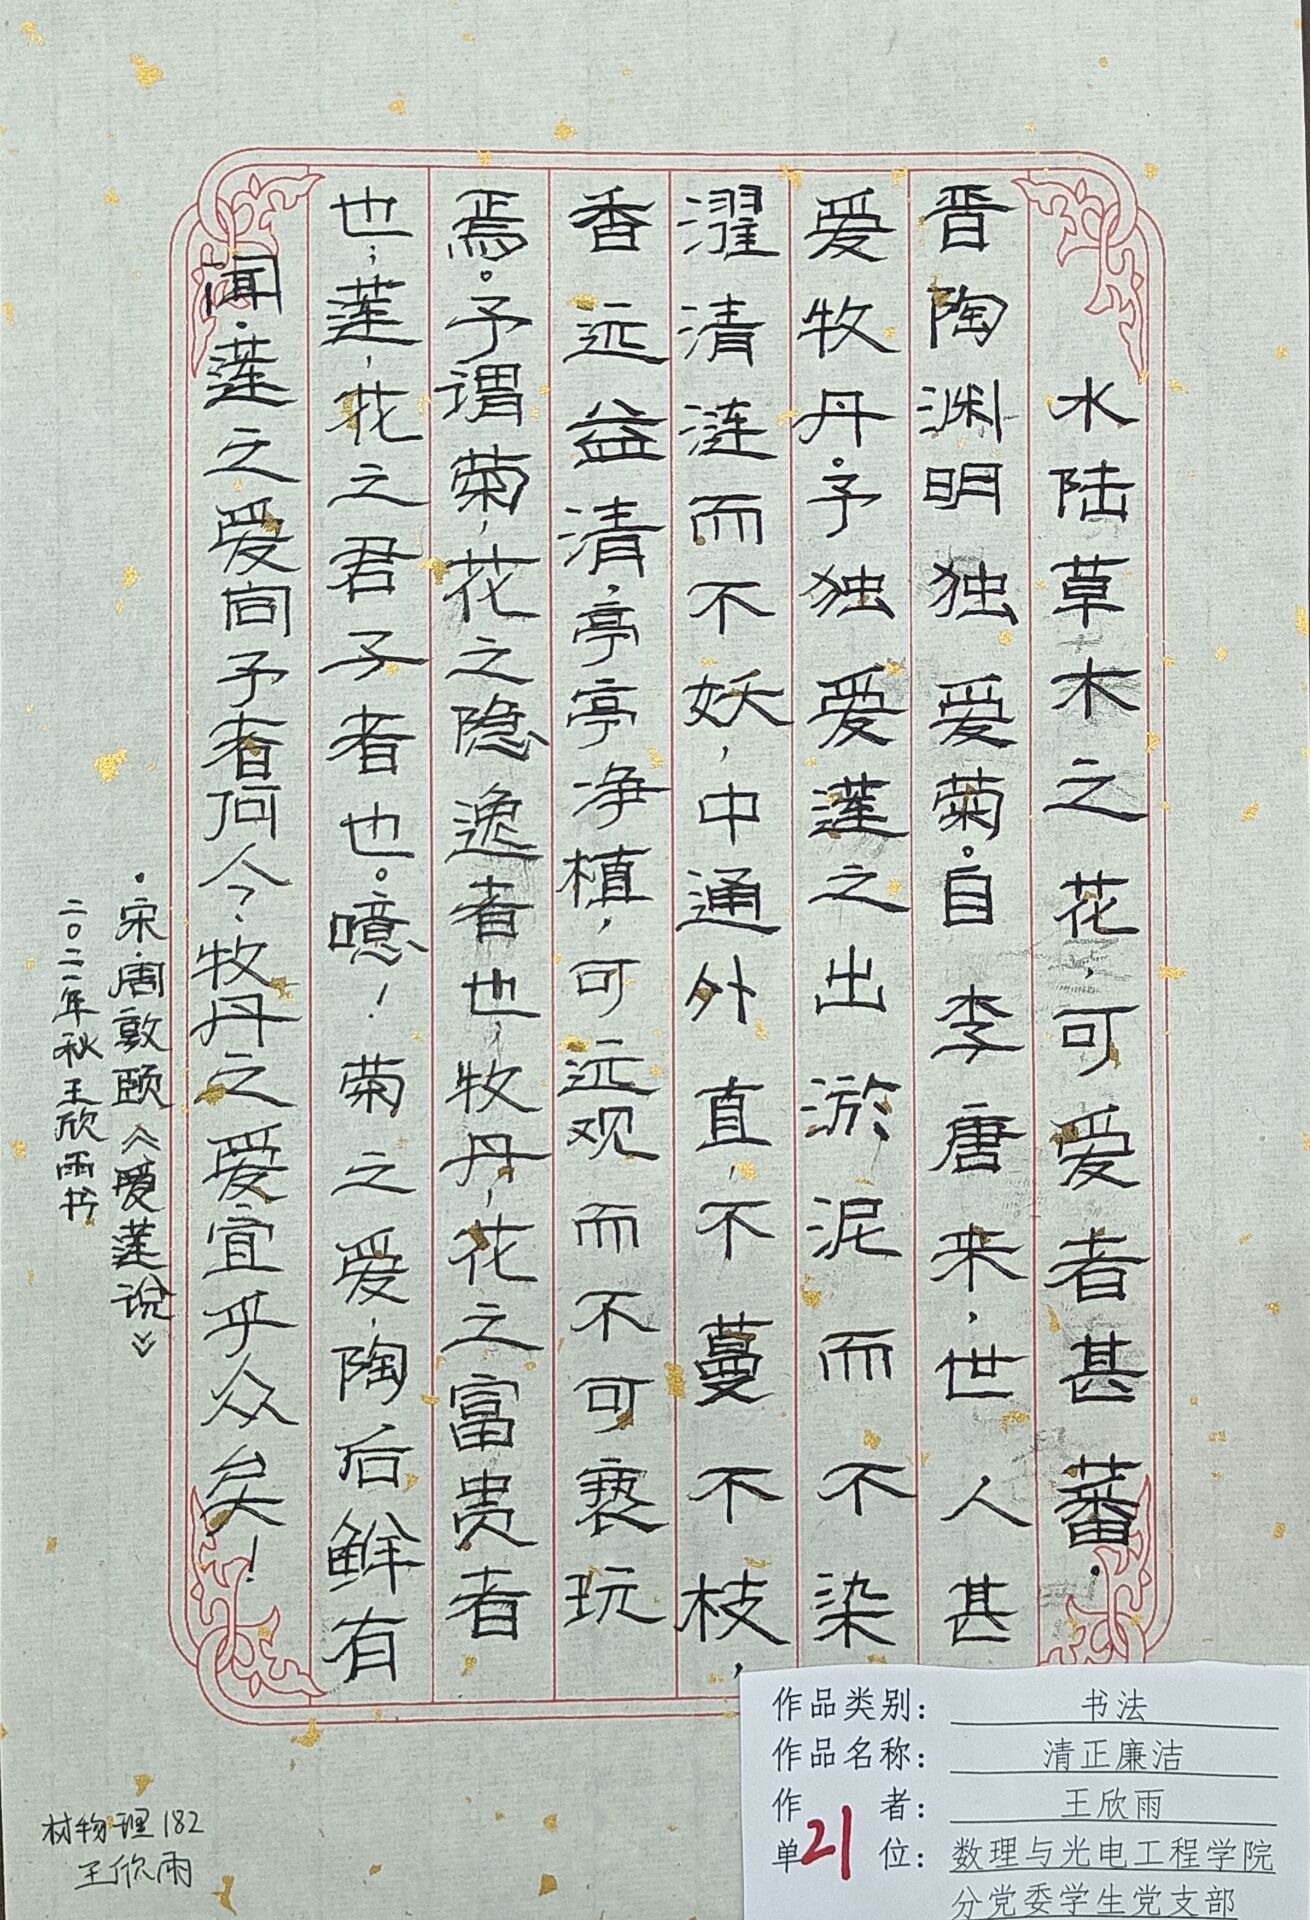 水陆草木之花，可爱者甚蕃．
晋陶渊明独爱菊。自李唐来，世人甚
爱牧丹。予独爱莲之出淤泥而不染
濯清涟而不妖，中通外直，不蔓不枝，
香远益清，亭亭净植，可远观而不可亵玩
焉。予谓菊，花之隐逸者也，牧丹，花之富贵者
也；莲，花之君子者也。噫！菊之爱，陶后鲜有
闻．莲之爱同予者何今、牧丹之爱宜乎众矣！
·宋·周敦颐《爱莲说》
二〇二一年秋王欣雨书
材物理182
王欣雨
作品类别：书法
作品名称：清正廉洁
作者：王欣雨
单位：数理与光电工程学院
分党委学生党支部
21